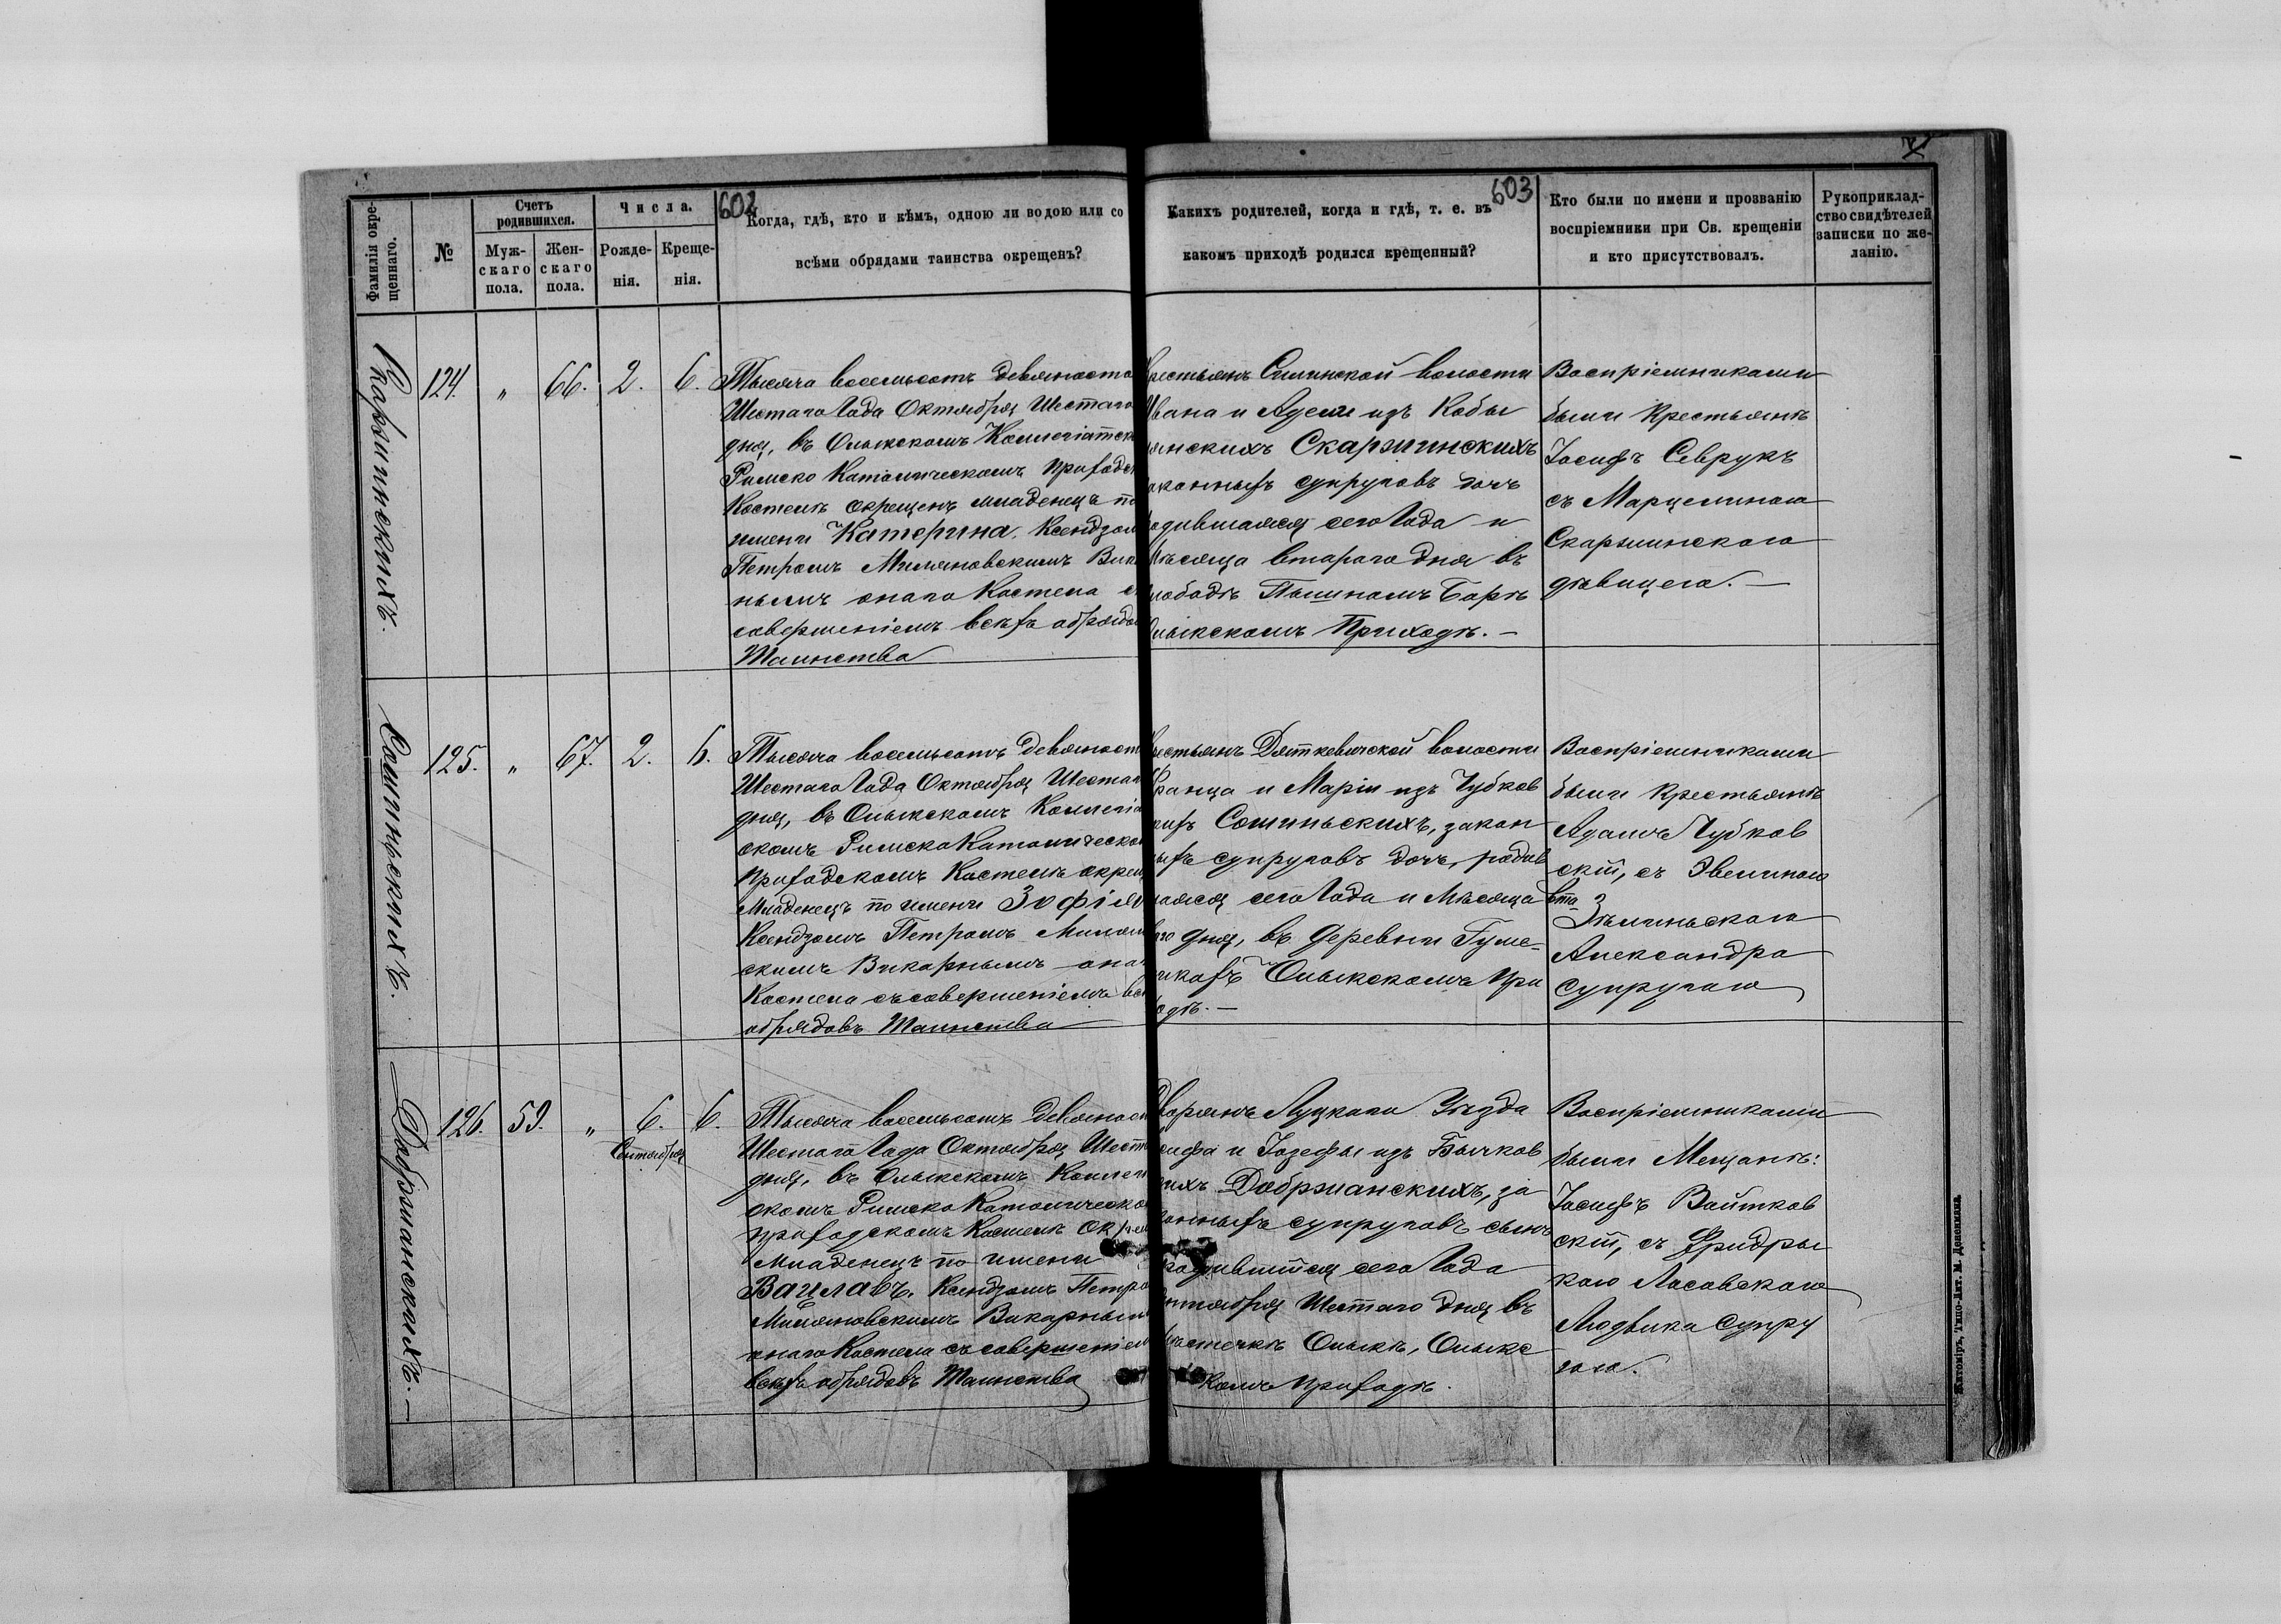 602
603
Фамилія окре-
щеннаго.
№
Счетъ
родившихся.
Муж-
скаго
пола.
Жен-
скаго
пола.
Числа.
Рожде-
нія.
Креще-
нія.
Когда, гдѣ, кто и кѣмъ, одною ли водою или со
всѣми обрядами таинства окрещенъ?
Какихъ родителей, когда и гдѣ, т. е. въ
какомъ приходѣ родился крещенный?
Кто были по имени и прозванію
воспріемники при Св. крещеніи
и кто присутствовалъ.
Рукоприклад-
ство свидѣтелей
записки по же-
ланію.
Скаржинскихъ.
124. " 66. 2. 6.
Тысяча восемьсотъ девяносто
Шестаго Года Октября Шестаго
дня, въ Олыкскомъ Коллегіатск
Римско Католическомъ Приходск
Костелѣ окрещенъ младенецъ по
имени Катерина. Ксендзом
Петромъ Миляновскимъ Вика
нымъ онаго Костела с
совершеніемъ всѣхъ обрядов
Таинства
рестьянъ Силинской волости
Ивана и Аделі изъ Кобы
янскихъ Скаржинскихъ
аконныхъ супруговъ дочь
одившаяся сего Года и
Мѣсяца втораго дня въ
лободѣ Пальиномъ Боргѣ
Олыкскомъ Приходѣ. —
Воспріемниками
были Крестьянѣ
Іосифъ Севрукъ
съ Марцелиною
Скаржинскою
дѣвицею. —
Сошиньскихъ.
125. " 67. 2. 6.
Тысяча восемьсотъ девяност
Шестаго Года Октября Шестаг
дня, въ Олыкскомъ Коллегіа
скомъ Римско Католическом
Приходскомъ Костелѣ окрещ
Младенецъ по имени Зофія
Ксендзомъ Петромъ Милян
скимъ Викарнымъ онаг
Костела съ совершеніемъ все
обрядовъ Таинства
рестьянъ Дяткевичской волости
Франца и Маріи изъ Чубков
ихъ Сошиньскихъ, закон
ыхъ супруговъ дочь, родив
аяся сего Года и Мѣсяца вта
го дня, въ деревни Гуме-
икахъ Олыкскомъ При
одѣ. —
Воспріемниками
были Крестьянѣ
Адамъ Чубков
скій, съ Эвелиною
Зѣлиньскою
Александра
Супругою
Добржанскихъ. —
126. 59. " 6. 6.
Сентября
Тысяча восемьсотъ девяност
Шестаго Года Октября Шест
дня, въ Олыкскомъ Коллеги
скомъ Римско Католическо
приходскомъ Костелѣ окрещ
Младенецъ по имени
Вацлавъ. Ксендзомъ Петро
Миляновскимъ Викарным
онаго Костела съ совершеніем
всѣхъ обрядовъ Таинства
Дворянъ Луцкаго Уѣзда
сифа и Іозефы изъ Бычков
ихъ Добржанскихъ, за
онныхъ супруговъ сынъ
родившійся сего Года
ентября Шестаго дня въ
Мѣстечкѣ Олыкѣ, Олыкс
комъ приходѣ.
Воспріемниками
были Мещанѣ:
Іосифъ Войтков
скій, съ Фридры
кою Лосовскою
Людвика Супру
гою.
Житоміръ, Типо-Лит. М. Дененмана.